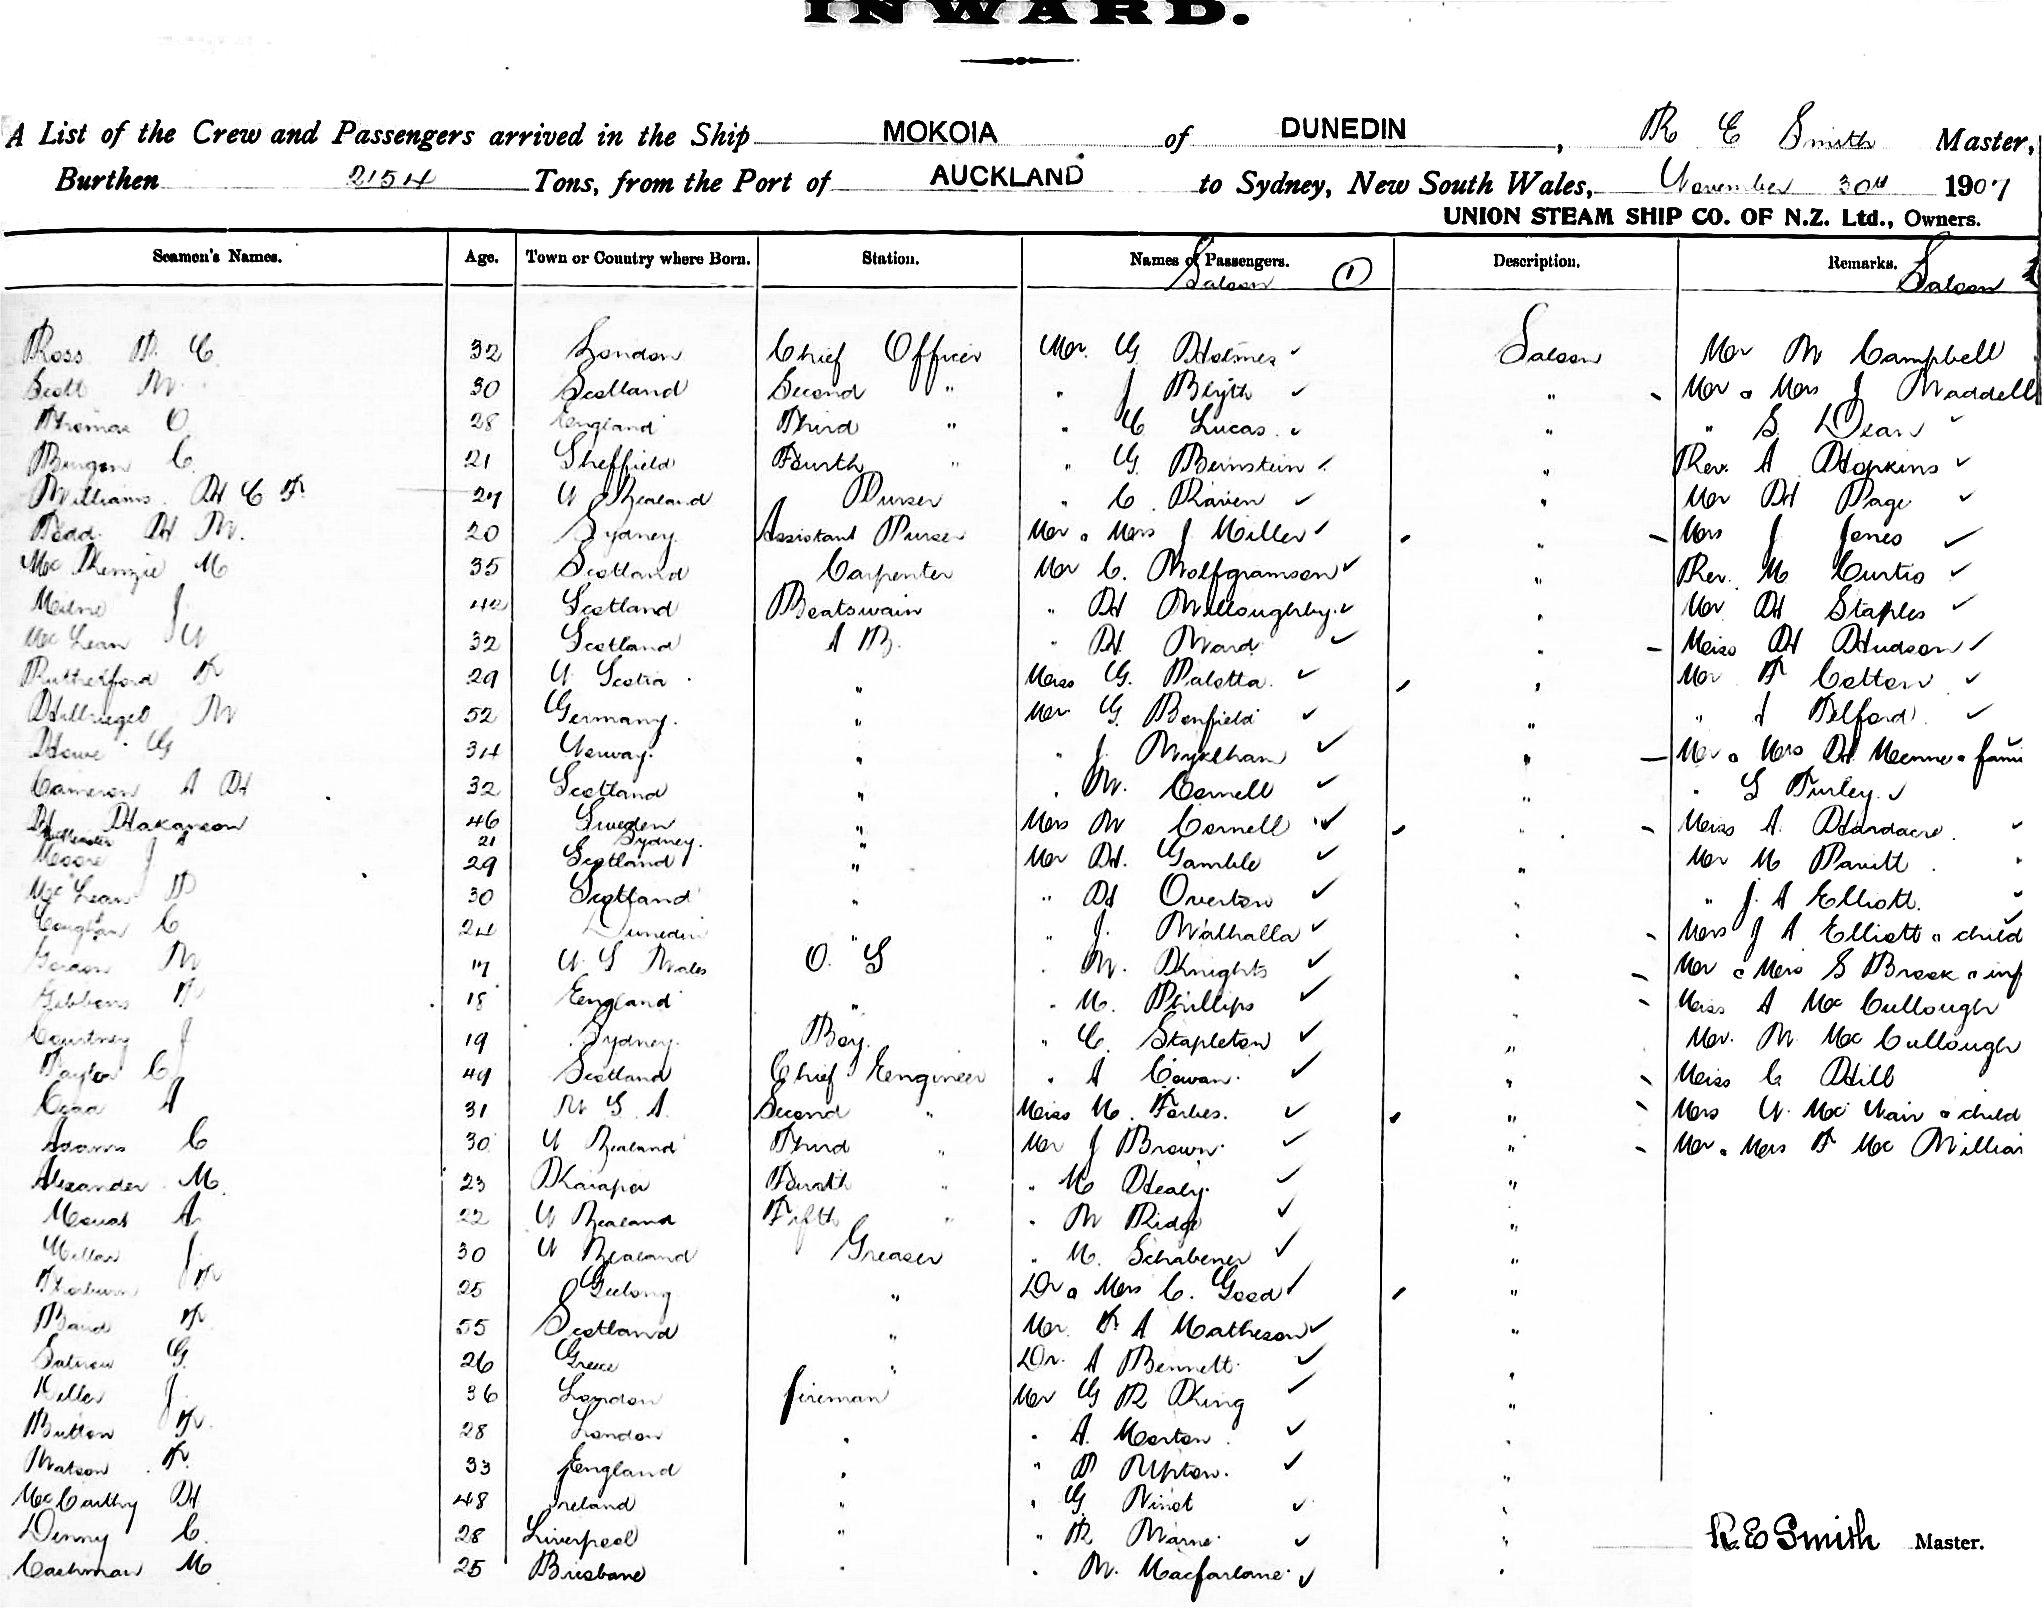 INWARD.
A List of the Crew and Passengers arrived in the Ship MOKOIA of DUNEDIN, R E Smith Master,
Burthen 2154 Tons, from the Port of AUCKLAND to Sydney, New South Wales, November 30th 1907
UNION STEAM SHIP CO. OF N.Z. Ltd., Owners.
Seamen's Names. Age. Town or Country where Born. Station. Names of Passengers. Description. Remarks.
Saloon 1 Saloon
Ross 32 London Chief Officer Mr. G Holmes Saloon Mr W Campbell
Scott W 30 Scotland Second " " J Blyth " Mr & Mrs J Waddell
Thomas O 28 England Third " " C Lucas " " S Dean
C 21 Sheffield Fourth " " G Bernstein " Rev. A Hopkins
Williams H C F 27 N Zealand Purser " C Raven " Mr H Page
H W. 20 Sydney Assistant Purser Mr & Mrs J Miller " Mrs J Jones
Mc Kenzie M 35 Scotland Carpenter Mr C. Wolfgramson " Rev. M Curtis
Milne J 42 Scotland Boatswain " H Willoughby " Mr H Staples
Mc Lean N 32 Scotland A B. " H Ward " Miss H Hudson
Rutherford F 29 N Scotia " Miss G. Palotta " Mr F Cotton
Hillriegel W 52 Germany. " Mr G Benfield " " Telford
Howe G 34 Norway. " " J. Wykham " Mr & Mrs H & fami
Cameron A H 32 Scotland " " W. Cornell " " S Turley
H Hakanson 46 Sweden " Mrs W Cornell " Miss A. Hardacre
21 Sydney. "
Moore J 29 Scotland " Mr H. Gamble " Mr M Pavitt
Mc Lean D 30 Scotland " " H Overton " " J. A Elliott.
Coughlan C 24 Dunedin " " J. Walhalla " Mrs J A Elliott & child
Gordon W 17 N S Wales O. S " W. Knights " Mr & Mrs S Brook & inf
Gibbons F 18 England " " M. Phillips " Miss A Mc Cullough
Courtney J 19 Sydney. Boy. " C. Stapleton " Mr. W. Mc Cullough
Taylor C 49 Scotland Chief Engineer " A Cowan. " Miss C Hill
A 31 Second " Miss M. Forbes. " Mrs N. Mc Nair & child
Adams C 30 N Zealand Third " Mr J Brown. " Mr & Mrs F Mc Millia
Alexander M. 23 Kaiapoi Fourth " " M Healy. "
Mouat A. 22 N Zealand Fifth " " W Ridge "
J. 30 N Zealand Greaser " M. Schabener "
F 25 Geelong " Dr & Mrs C. Good "
F. 55 Scotland " Mr. F A Matheson "
G. 26 Greece " Dr. A Bennett. "
J. 36 London fireman Mr G R King "
Button F. 28 London " " A. Morton "
Watson F. 33 England " " D Upton. "
Mc Carthy H 48 Ireland " " G. "
Denny C. 28 Liverpool " " R " R.E Smith Master.
Cashman M. 25 Brisbane " " W. Macfarlane. "